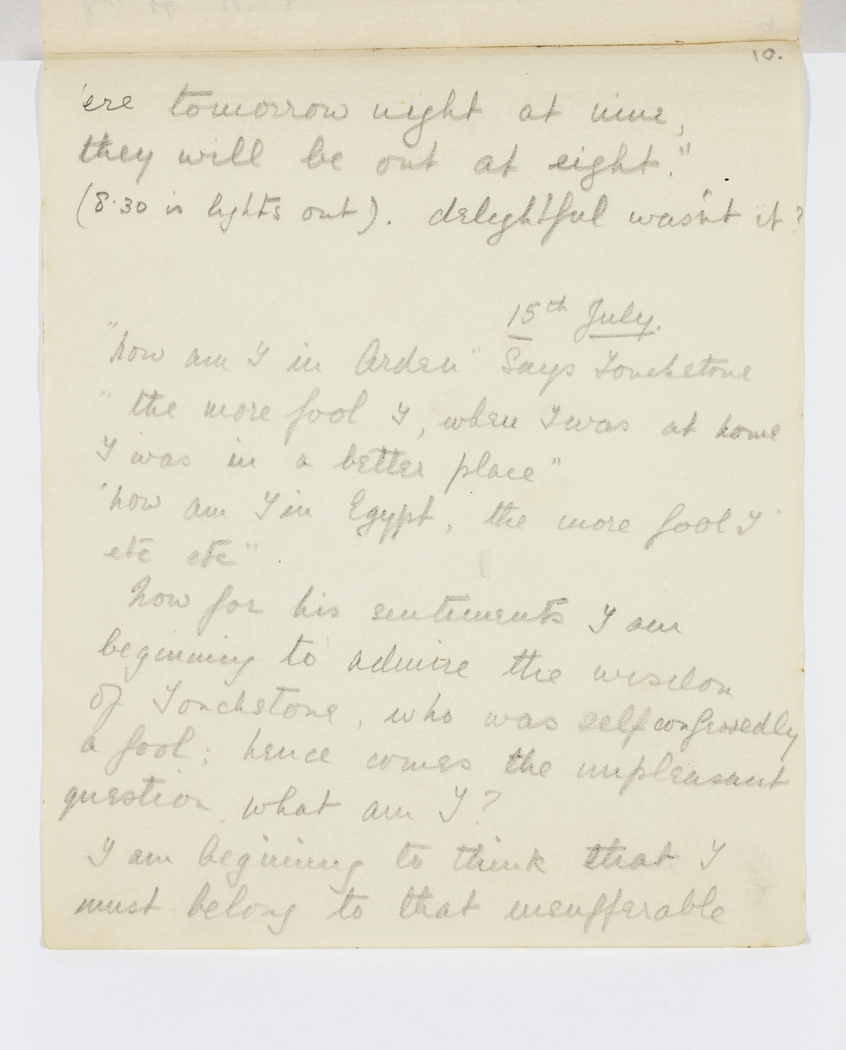 10.
'ere tomorrow night at nine,
they will be out at eight."
(8.30 is lights out). delightful wasn't it?
15th July.
"how am I in Arden" Says Touchstone
"the more fool I, when I was at home
I was in a better place"
"how am I in Egypt, the more fool I
etc etc"
how for his sentiments I am
beginning to admire the wisdom
of Touchstone, who was self confessedly
a fool; hence comes the unpleasant
question, what am I?
I am begining to think that I
must belong to that insufferable